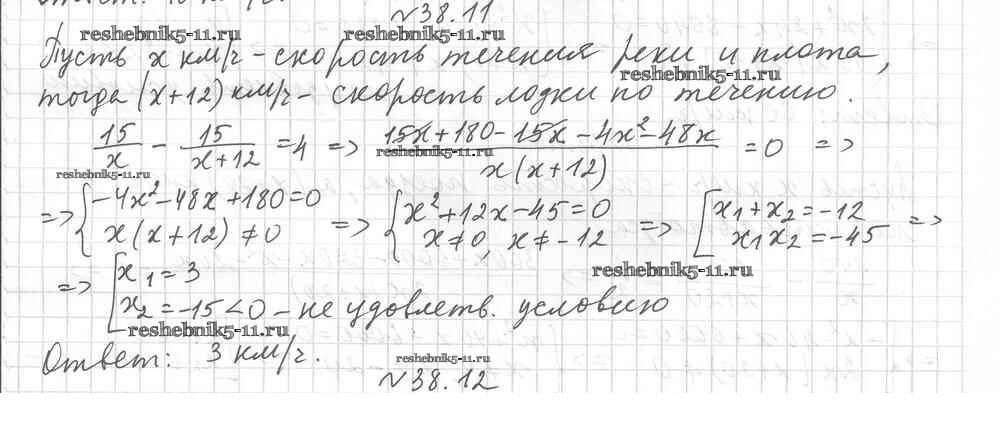 №38.11
reshebnik5-11.ru reshebnik5-11.ru
Пусть x км/ч - скорость течения реки и плота,
reshebnik5-11.ru
тогда (x+12) км/ч - скорость лодки по течению.
15/x - 15/(x+12) = 4 => (15x+180-15x-4x²-48x)/(x(x+12)) = 0 =>
reshebnik5-11.ru reshebnik5-11.ru
=> { -4x²-48x+180=0 => { x²+12x-45=0 => [ x₁+x₂=-12 =>
x(x+12)≠0 x≠0, x≠-12 x₁x₂=-45
reshebnik5-11.ru
=> [ x₁=3
x₂=-15<0 - не удовлетв. условию
reshebnik5-11.ru
Ответ: 3 км/ч.
reshebnik5-11.ru
№38.12